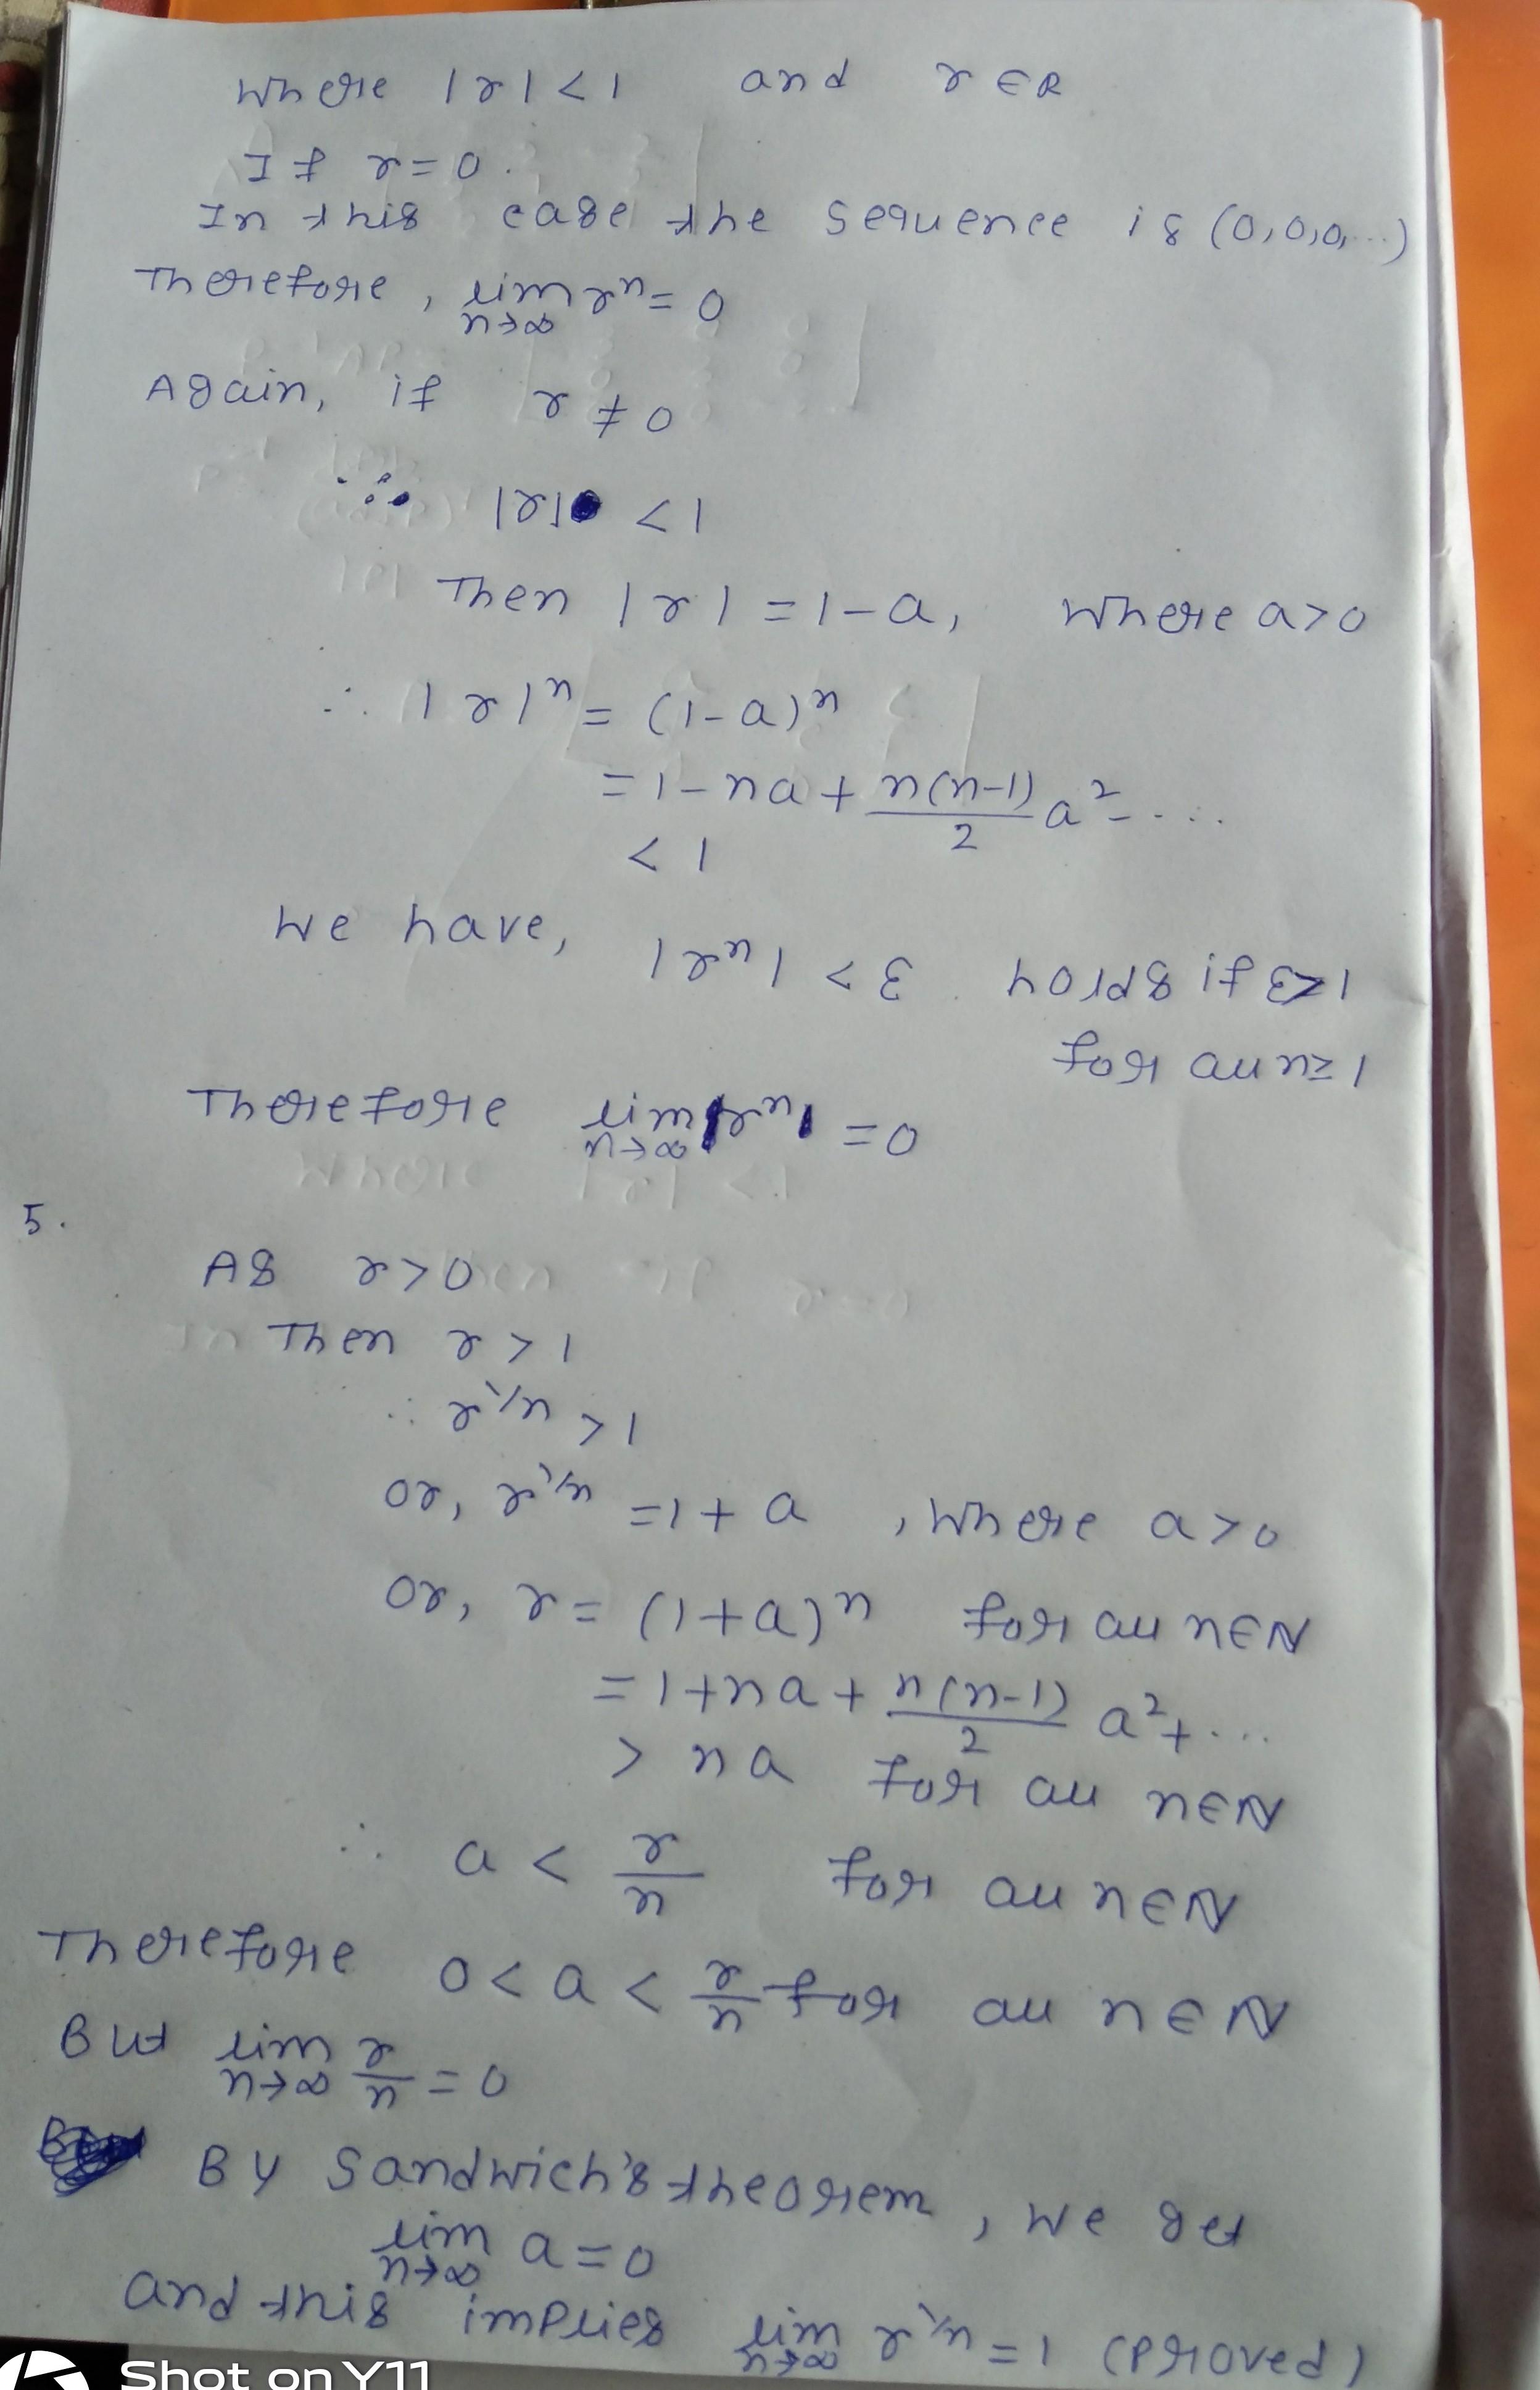 Where |r| < 1 and r ∈ R
If r = 0.
In this case the sequence is (0,0,0,...)
Therefore, lim n→∞ rⁿ = 0
Again, if r ≠ 0
∴ |r| < 1
Then |r| = 1 - a, where a > 0
∴ |r|ⁿ = (1-a)ⁿ
= 1 - na + n(n-1)/2 a² - ...
< 1
We have, |rⁿ| < ε holds if ε > 1
for all n ≥ 1
Therefore lim n→∞ |rⁿ| = 0
5.
As r > 0
Then r > 1
∴ r^1/n > 1
or, r^1/n = 1 + a , where a > 0
or, r = (1+a)ⁿ for all n ∈ N
= 1 + na + n(n-1)/2 a² + ...
> na for all n ∈ N
∴ a < r/n for all n ∈ N
Therefore 0 < a < r/n for all n ∈ N
But lim n→∞ r/n = 0
By Sandwich's theorem, we get
lim n→∞ a = 0
and this implies lim n→∞ r^1/n = 1 (Proved)
Shot on Y11